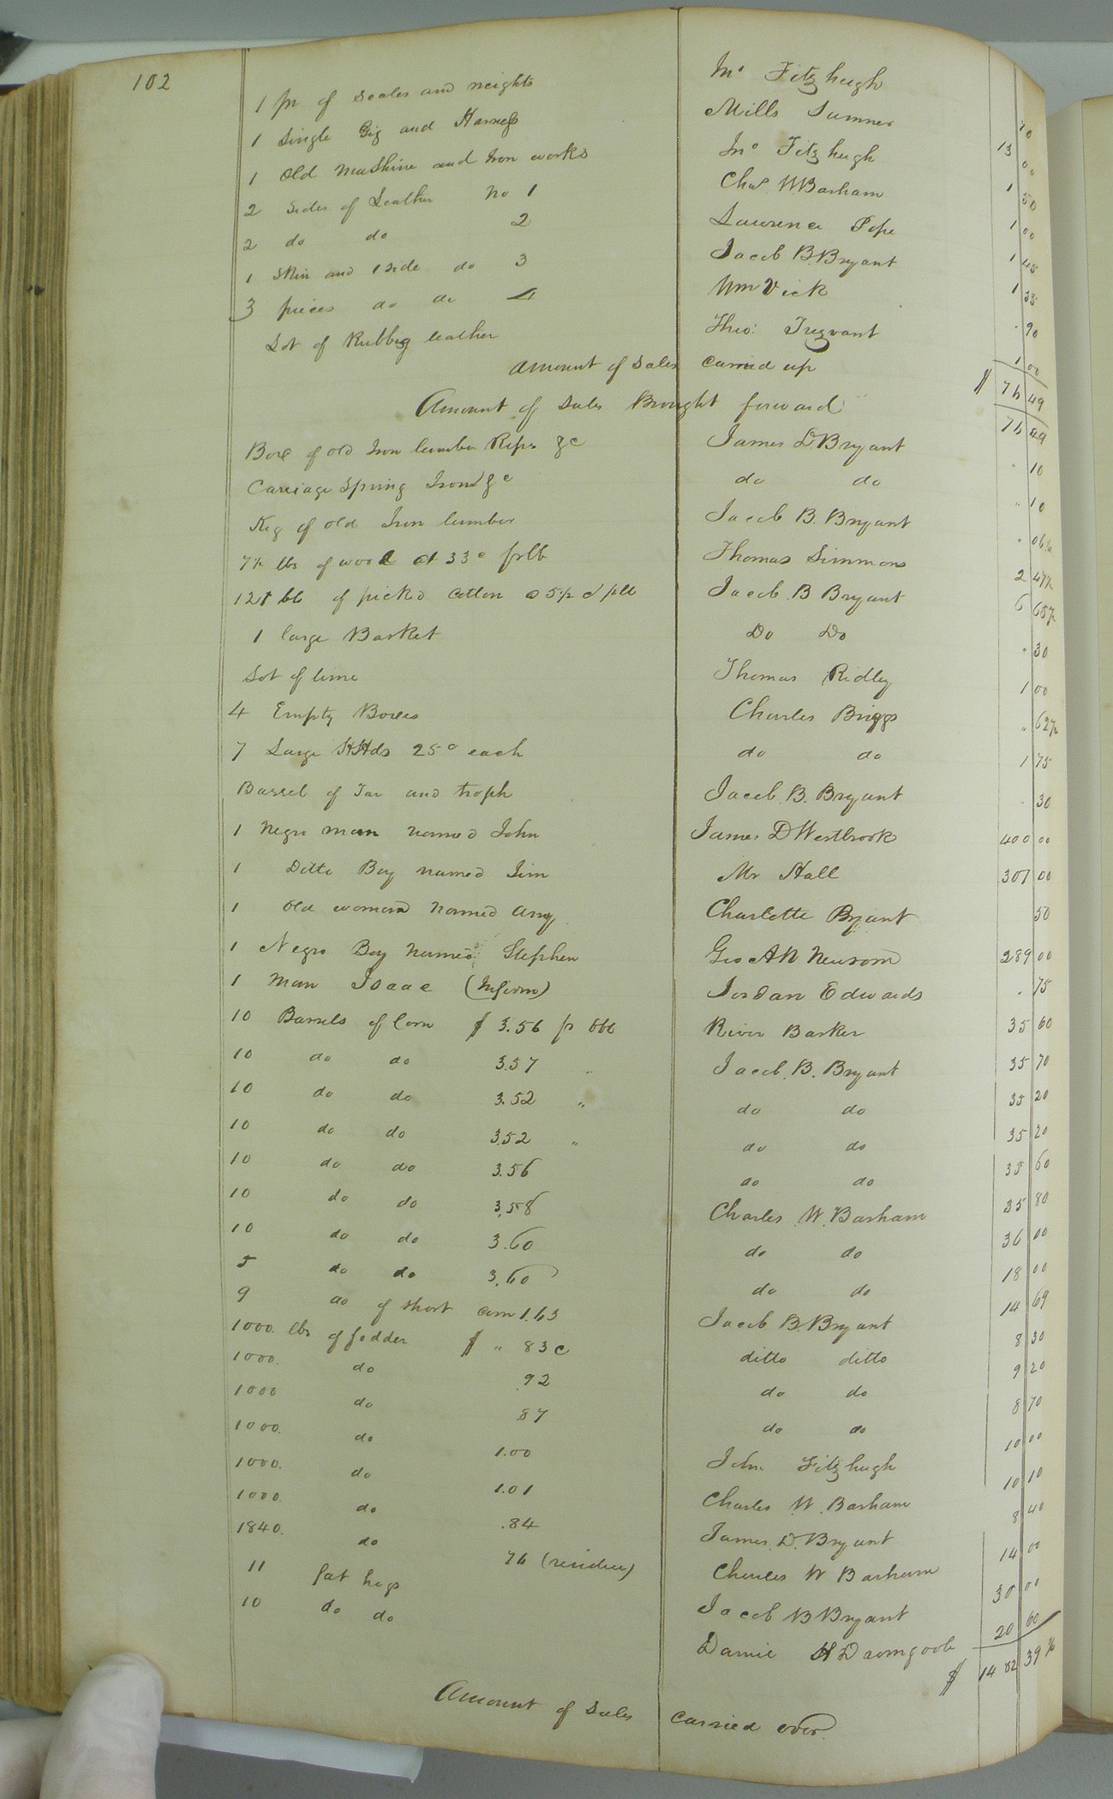 102
1 pr of Scales and weights Jno Fitzhugh 70
1 Single Gig and Harness Mills Sumner 13 00
1 Old Mashine and Iron works Jno Fitzhugh 1 50
2 Sides of Leather No 1 Chas W Barham 1 00
2 do do 2 Lawrence Pope 1 45
1 Skin and 1 side do 3 Jacob B. Bryant 1 35
3 pieces do do 4 Wm Vick " 90
Lot of Rubbing leather Theo: Trezvant 1 00
Amount of Sales Carried up $ 76 49
Amount of Sales Brought forward 76 49
Box of old Iron lumber Rips &c James D Bryant " 10
Carriage Spring Irons &c do do " 10
Keg of old Iron lumber Jacob B. Bryant " 06¼
7½ lbs of wool at 33c pr lb Thomas Simmons 2 47½
121 lbs of picked Cotton @ 5½ d p lb Jacob B Bryant 6 65½
1 large Basket Do Do " 30
Lot of lime Thomas Ridley 1 00
4 Empty Boxes Charles Briggs " 62½
7 Large HHds 25c each do do 1 75
Barrel of Tar and Jacob. B. Bryant " 30
1 Negro man named John James D Westbrook 400 00
1 Ditto Boy named Jim Mr Hall 307 00
1 Old woman named Amy Charlotte Bryant 50
1 Negro Boy named Stephen Geo A W Newsom 289 00
1 Man Isaac (Infirm) Jordan Edwards " 75
10 Barrels of Corn $ 3.56 pr bbl River Barker 35 60
10 do do 3.57 " Jacob. B. Bryant 35 70
10 do do 3.52 " do do 35 20
10 do do 3.52 " do do 35 20
10 do do 3.56 do do 35 60
10 do do 3.58 Charles W. Barham 35 80
10 do do 3.60 do do 36 00
5 do do 3.60 do do 18 00
9 do of short corn 1.63 Jacob B. Bryant 14 69
1000. lbs of fodder $ " 83c ditto ditto 8 30
1000. do .92 do do 9 20
1000 do .87 do do 8 70
1000. do 1.00 John Fitzhugh 10 00
1000. do 1.01 Charles W. Barham 10 10
1000 do .84 James. D. Bryant 8 40
1840. do 76 (residue) Charles W Barham 14 00
11 fat hogs Jacob B Bryant 30 00
10 do do H Dromgoole 20 60
$ 14 82 39¾
Amount of Sales carried over.